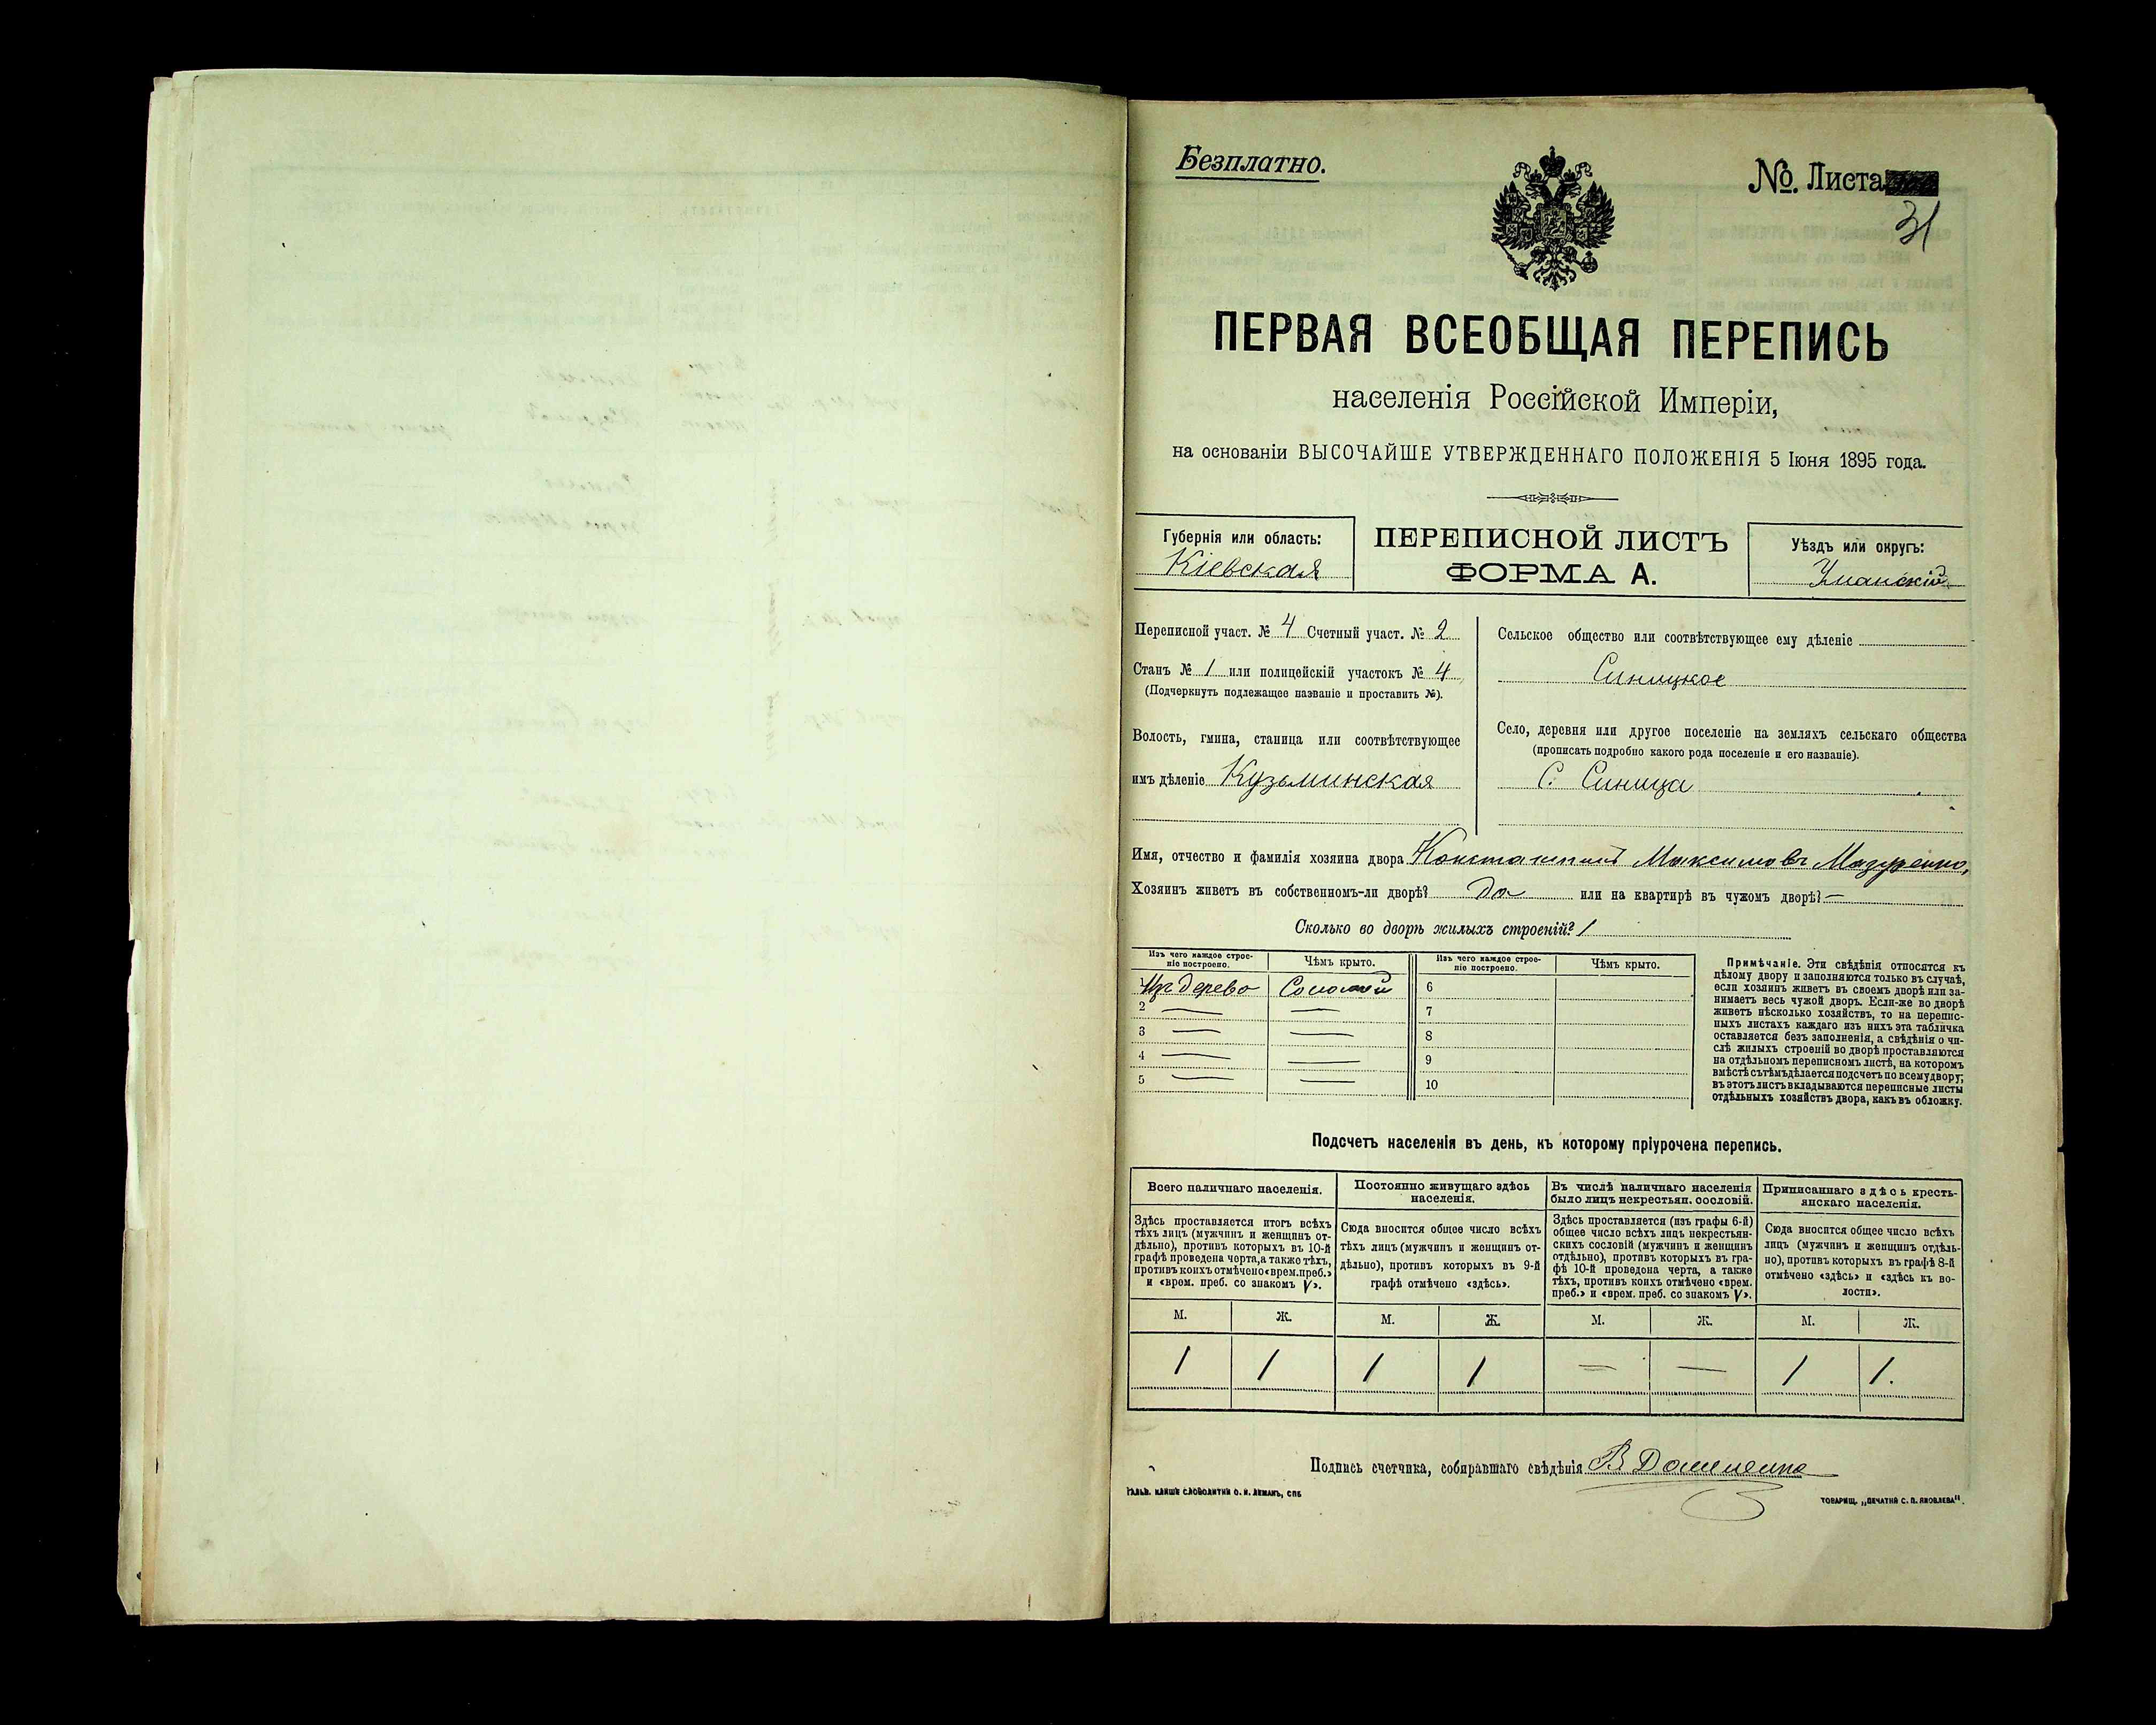 Безплатно.
№. Листа
31
ПЕРВАЯ ВСЕОБЩАЯ ПЕРЕПИСЬ
населенія Россійской Имперіи,
на основаніи ВЫСОЧАЙШЕ УТВЕРЖДЕННАГО ПОЛОЖЕНІЯ 5 Іюня 1895 года.
Губернія или область:
Кіевская
ПЕРЕПИСНОЙ ЛИСТЪ
ФОРМА А.
Уѣздъ или округъ:
Уманскій
Переписной участ. № 4 Счетный участ. № 2
Станъ № 1 или полицейскій участокъ № 4
(Подчеркнуть подлежащее названіе и проставить №).
Волость, гмина, станица или соотвѣтствующее
имъ дѣленіе Кузьминская
Сельское общество или соотвѣтствующее ему дѣленіе
Синицкое
Село, деревня или другое поселеніе на земляхъ сельскаго общества
(прописать подробно какого рода поселеніе и его названіе).
С. Синица
Имя, отчество и фамилія хозяина двора Константинъ Максимовъ Мазуренко,
Хозяинъ живетъ въ собственномъ-ли дворѣ? Да или на квартирѣ въ чужомъ дворѣ? —
Сколько во дворѣ жилыхъ строеній? 1
Изъ чего каждое строе-
ніе построено.
Чѣмъ крыто.
Изъ чего каждое строе-
ніе построено.
Чѣмъ крыто.
1 Изъ дерево Соломой
2 — —
3 — —
4 — —
5 — —
6
7
8
9
10
Примѣчаніе. Эти свѣдѣнія относятся къ
цѣлому двору и заполняются только въ случаѣ,
если хозяинъ живетъ въ своемъ дворѣ или за-
нимаетъ весь чужой дворъ. Если-же во дворѣ
живетъ нѣсколько хозяйствъ, то на перепис-
ныхъ листахъ каждаго изъ нихъ эта табличка
оставляется безъ заполненія, а свѣдѣнія о чи-
слѣ жилыхъ строеній во дворѣ проставляются
на отдѣльномъ переписномъ листѣ, на которомъ
вмѣстѣ съ тѣмъ дѣлается подсчетъ по всему двору;
въ этотъ листъ вкладываются переписные листы
отдѣльныхъ хозяйствъ двора, какъ въ обложку.
Подсчетъ населенія въ день, къ которому пріурочена перепись.
Всего наличнаго населенія.
Здѣсь проставляется итогъ всѣхъ
тѣхъ лицъ (мужчинъ и женщинъ от-
дѣльно), противъ которыхъ въ 10-й
графѣ проведена черта, а также тѣхъ,
противъ коихъ отмѣчено «врем. преб.»
и «врем. преб. со знакомъ V».
Постоянно живущаго здѣсь
населенія.
Сюда вносится общее число всѣхъ
тѣхъ лицъ (мужчинъ и женщинъ от-
дѣльно), противъ которыхъ въ 9-й
графѣ отмѣчено «здѣсь».
Въ числѣ наличнаго населенія
было лицъ некрестьян. сословій.
Здѣсь проставляется (изъ графы 6-й)
общее число всѣхъ лицъ некрестьян-
скихъ сословій (мужчинъ и женщинъ
отдѣльно), противъ которыхъ въ гра-
фѣ 10-й проведена черта, а также
тѣхъ, противъ коихъ отмѣчено «врем.
преб.» и «врем. преб. со знакомъ V».
Приписаннаго здѣсь кресть-
янскаго населенія.
Сюда вносится общее число всѣхъ
лицъ (мужчинъ и женщинъ отдѣль-
но), противъ которыхъ въ графѣ 8-й
отмѣчено «здѣсь» и «здѣсь къ во-
лости».
М. Ж. М. Ж. М. Ж. М. Ж.
1 1 1 1 — — 1 1.
Подпись счетчика, собиравшаго свѣдѣнія В
ГАЛЬВ. КЛИШЕ СЛОВОЛИТНИ О. И. ЛЕМАНЪ, СПБ
ТОВАРИЩ. „ПЕЧАТНЯ С. П. ЯКОВЛЕВА".